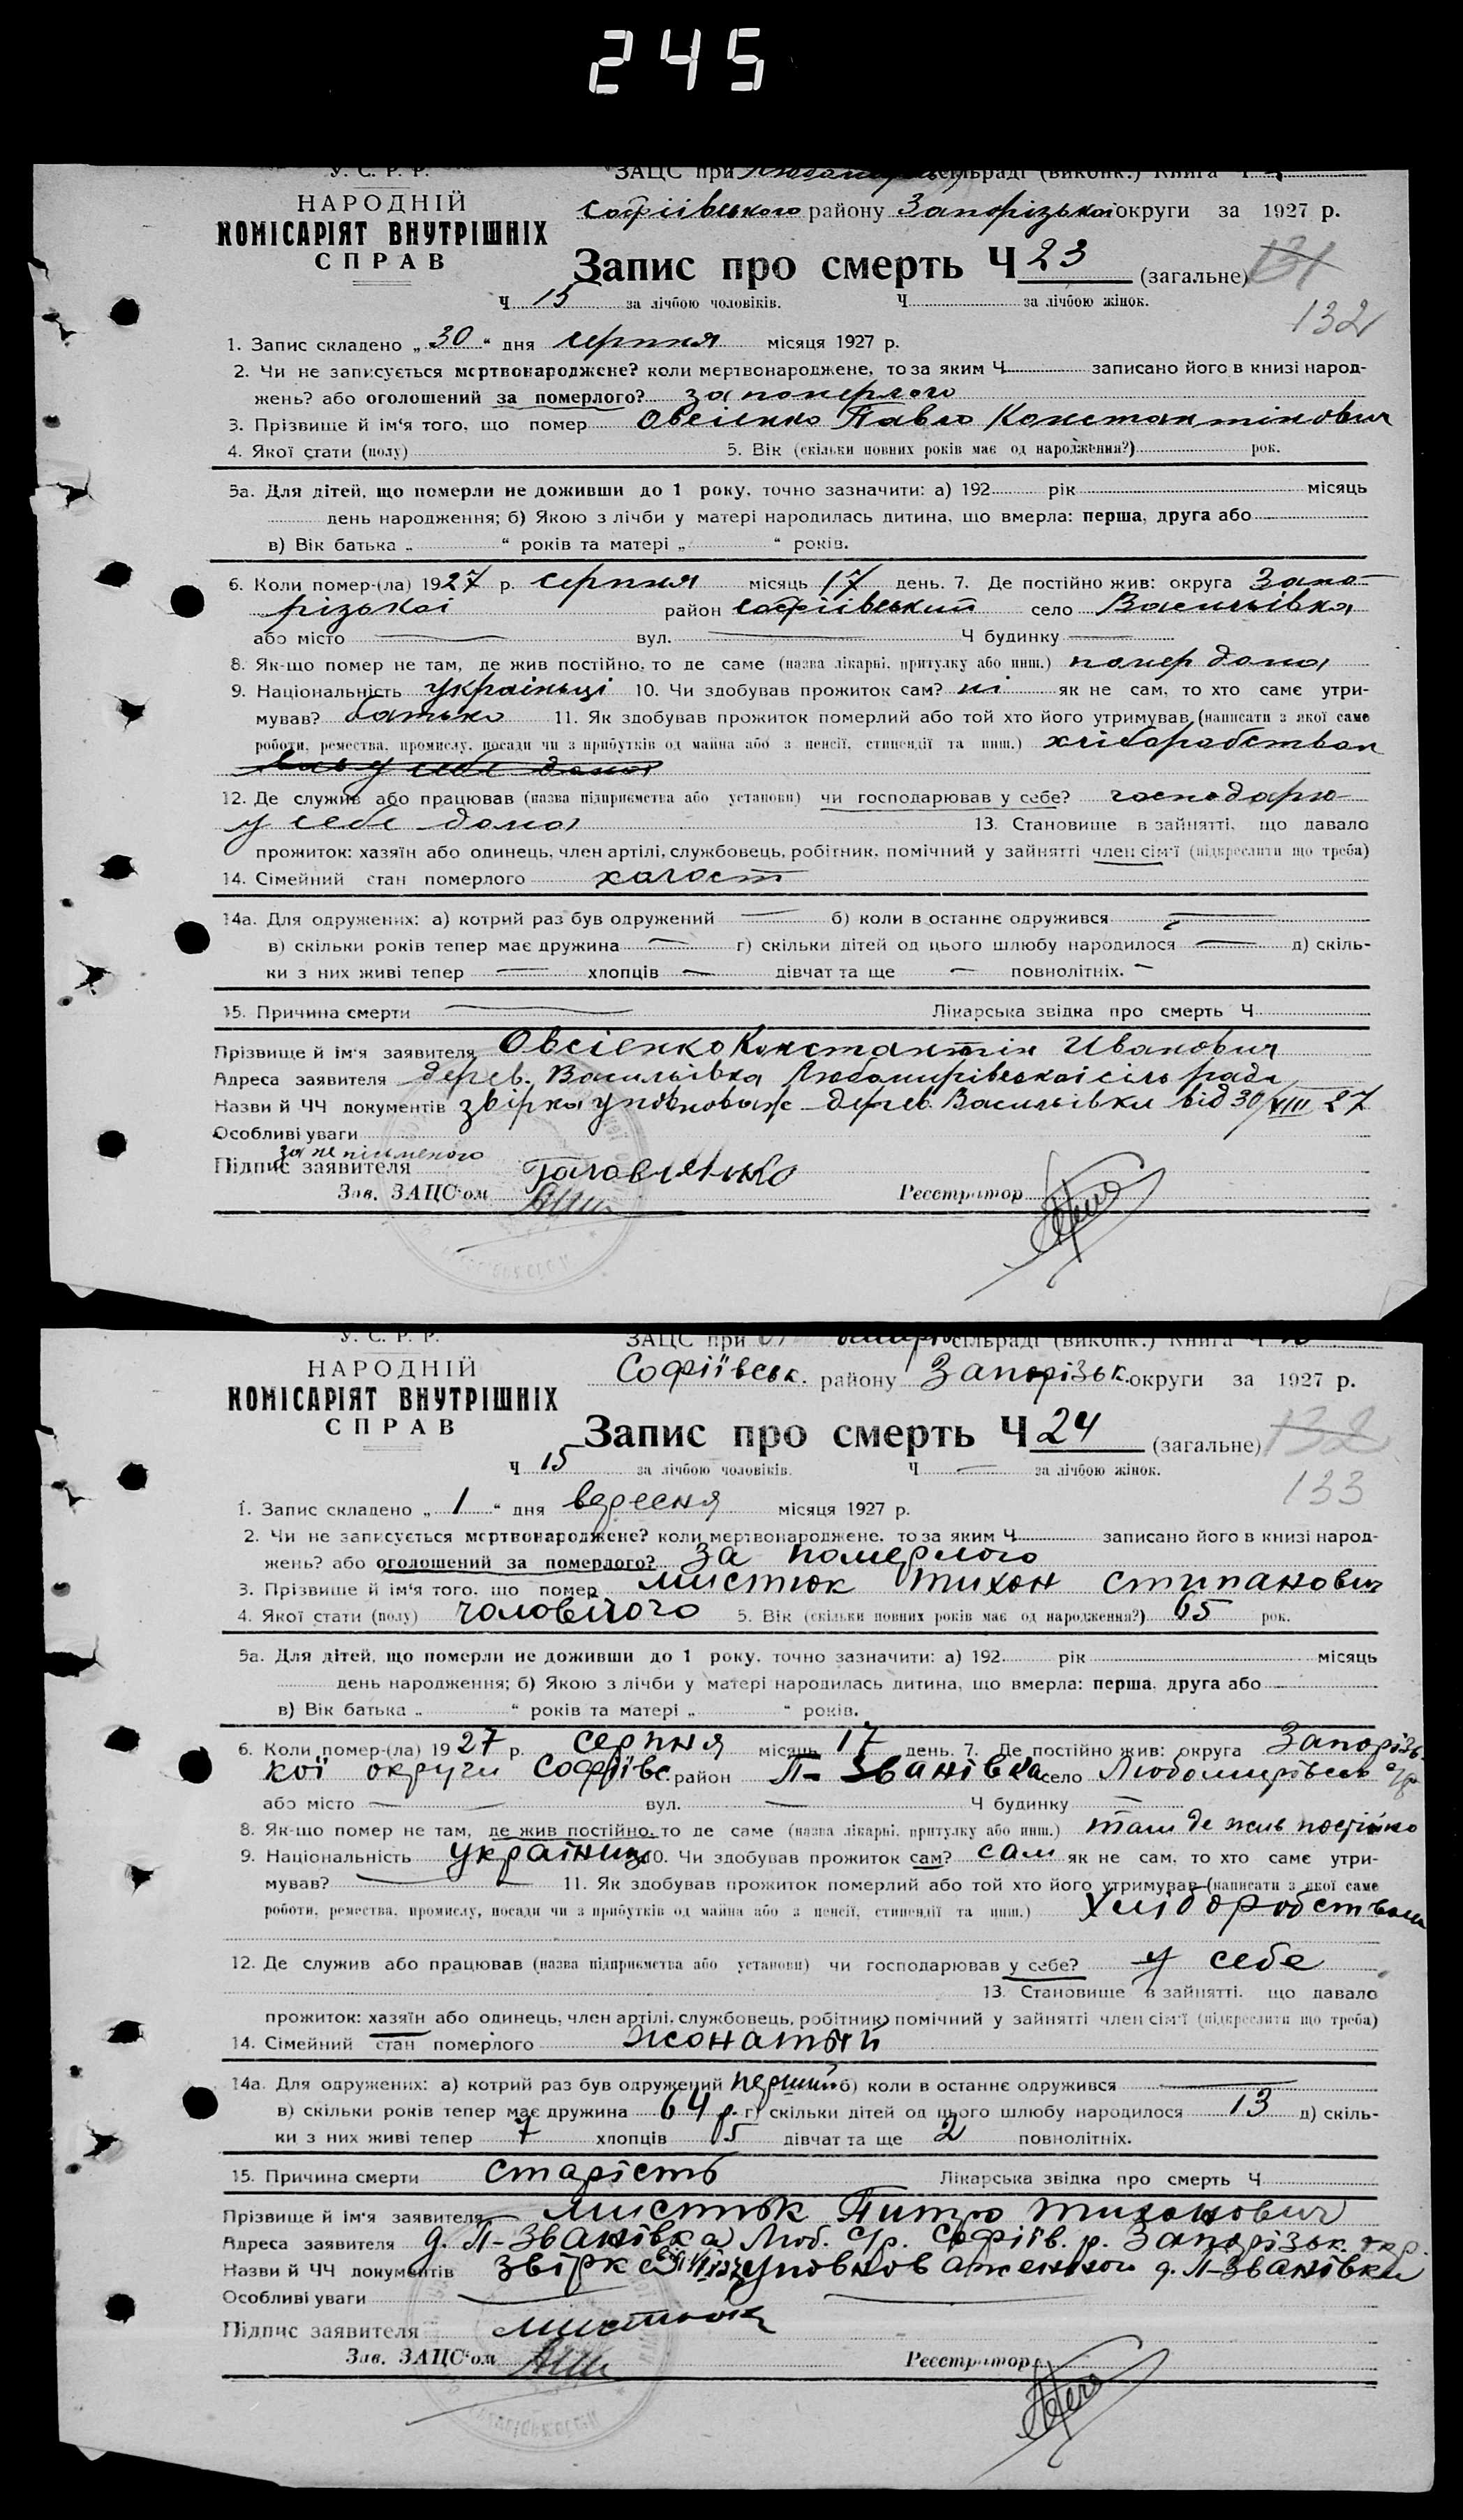 245
У. С. Р. Р.
ЗАЦС при сільраді (виконк.) Книга Ч
НАРОДНІЙ
КОМІСАРІЯТ ВНУТРІШНІХ
СПРАВ
Софіівського району Запорізькоі округи за 1927 р.
Запис про смерть Ч 23 (загальне) 131
132
Ч 15 за лічбою чоловіків. Ч за лічбою жінок.
1. Запис складено „30“ дня серпня місяця 1927 р.
2. Чи не записується мертвонароджене? коли мертвонароджене, то за яким Ч записано його в книзі народ-
жень? або оголошений за померлого? за померлого
3. Прізвище й ім'я того, що помер Овсіенко Павло Константінович
4. Якої стати (полу) 5. Вік (скільки повних років має од народження?) рок.
5а. Для дітей, що померли не доживши до 1 року, точно зазначити: а) 192 рік місяць
день народження; б) Якою з лічби у матері народилась дитина, що вмерла: перша, друга або
в) Вік батька „ “ років та матері „ “ років.
6. Коли помер-(ла) 1927 р. серпня місяць 17 день. 7. Де постійно жив: округа Запо-
різькоі район Софіівський село Васильівка
або місто — вул. — Ч будинку —
8. Як-що помер не там, де жив постійно, то де саме (назва лікарні, притулку або инш.) помер дома
9. Національність украінці 10. Чи здобував прожиток сам? ні як не сам, то хто саме утри-
мував? батько 11. Як здобував прожиток померлий або той хто його утримував (написати з якої саме
роботи, ремества, промислу, посади чи з прибутків од майна або з пенсії, стипендії та инш.) хліборобством
у себе дома
12. Де служив або працював (назва підприємства або установи) чи господарював у себе? господарю
у себе дома 13. Становище в зайнятті, що давало
прожиток: хазяїн або одинець, член артілі, службовець, робітник, помічний у зайнятті член сім'ї (підкреслити що треба)
14. Сімейний стан померлого холост
14а. Для одружених: а) котрий раз був одружений — б) коли в останнє одружився —
в) скільки років тепер має дружина — г) скільки дітей од цього шлюбу народилося — д) скіль-
ки з них живі тепер — хлопців — дівчат та ще — повнолітніх. —
15. Причина смерти — Лікарська звідка про смерть Ч
Прізвище й ім'я заявителя Овсіенко Константін Иванович
Адреса заявителя дерев. Васильівка Любомирівськоі сіль ради
Назви й ЧЧ документів звірка уповноваж дерев. Васильівки від 30/VIII 27
Особливі уваги
за не письменого
Підпис заявителя
Зав. ЗАЦС'ом Реєстратор
У. С. Р. Р.
ЗАЦС при сільраді (виконк.) Книга Ч
НАРОДНІЙ
КОМІСАРІЯТ ВНУТРІШНІХ
СПРАВ
Софіївськ. району Запорізьк. округи за 1927 р.
Запис про смерть Ч 24 (загальне) 132
133
Ч 15 за лічбою чоловіків. Ч — за лічбою жінок.
1. Запис складено „1“ дня вересня місяця 1927 р.
2. Чи не записується мертвонароджене? коли мертвонароджене, то за яким Ч записано його в книзі народ-
жень? або оголошений за померлого? За померлого
3. Прізвище й ім'я того, що помер Мистюк Тихон Стипанович
4. Якої стати (полу) чоловічого 5. Вік (скільки повних років має од народження?) 65 рок.
5а. Для дітей, що померли не доживши до 1 року, точно зазначити: а) 192 рік місяць
день народження; б) Якою з лічби у матері народилась дитина, що вмерла: перша, друга або
в) Вік батька „ “ років та матері „ “ років.
6. Коли помер-(ла) 1927 р. серпня місяць 17 день. 7. Де постійно жив: округа Запорізь-
кої округи Софіївс. район П-Званівка село Любомирівськ с/р
або місто — вул. — Ч будинку —
8. Як-що помер не там, де жив постійно, то де саме (назва лікарні, притулку або инш.) там де жив постійно
9. Національність українц 10. Чи здобував прожиток сам? сам як не сам, то хто саме утри-
мував? — 11. Як здобував прожиток померлий або той хто його утримував (написати з якої саме
роботи, ремества, промислу, посади чи з прибутків од майна або з пенсії, стипендії та инш.) Хліборобством
12. Де служив або працював (назва підприємства або установи) чи господарював у себе? у себе
13. Становище в зайнятті, що давало
прожиток: хазяїн або одинець, член артілі, службовець, робітник, помічний у зайнятті член сім'ї (підкреслити що треба)
14. Сімейний стан померлого жонатий
14а. Для одружених: а) котрий раз був одружений перший б) коли в останнє одружився —
в) скільки років тепер має дружина 64 р. г) скільки дітей од цього шлюбу народилося 13 д) скіль-
ки з них живі тепер 7 хлопців 5 дівчат та ще 2 повнолітніх.
15. Причина смерти старість Лікарська звідка про смерть Ч
Прізвище й ім'я заявителя Мистюк Питро Тиханович
Адреса заявителя д. П-Званівка Люб. с/р. Софіїв. р. Запорізьк. окр.
Назви й ЧЧ документів звірка уповноваженной д. П-Званівки
Особливі уваги —
Підпис заявителя Мистюк
Зав. ЗАЦС'ом Реєстратор